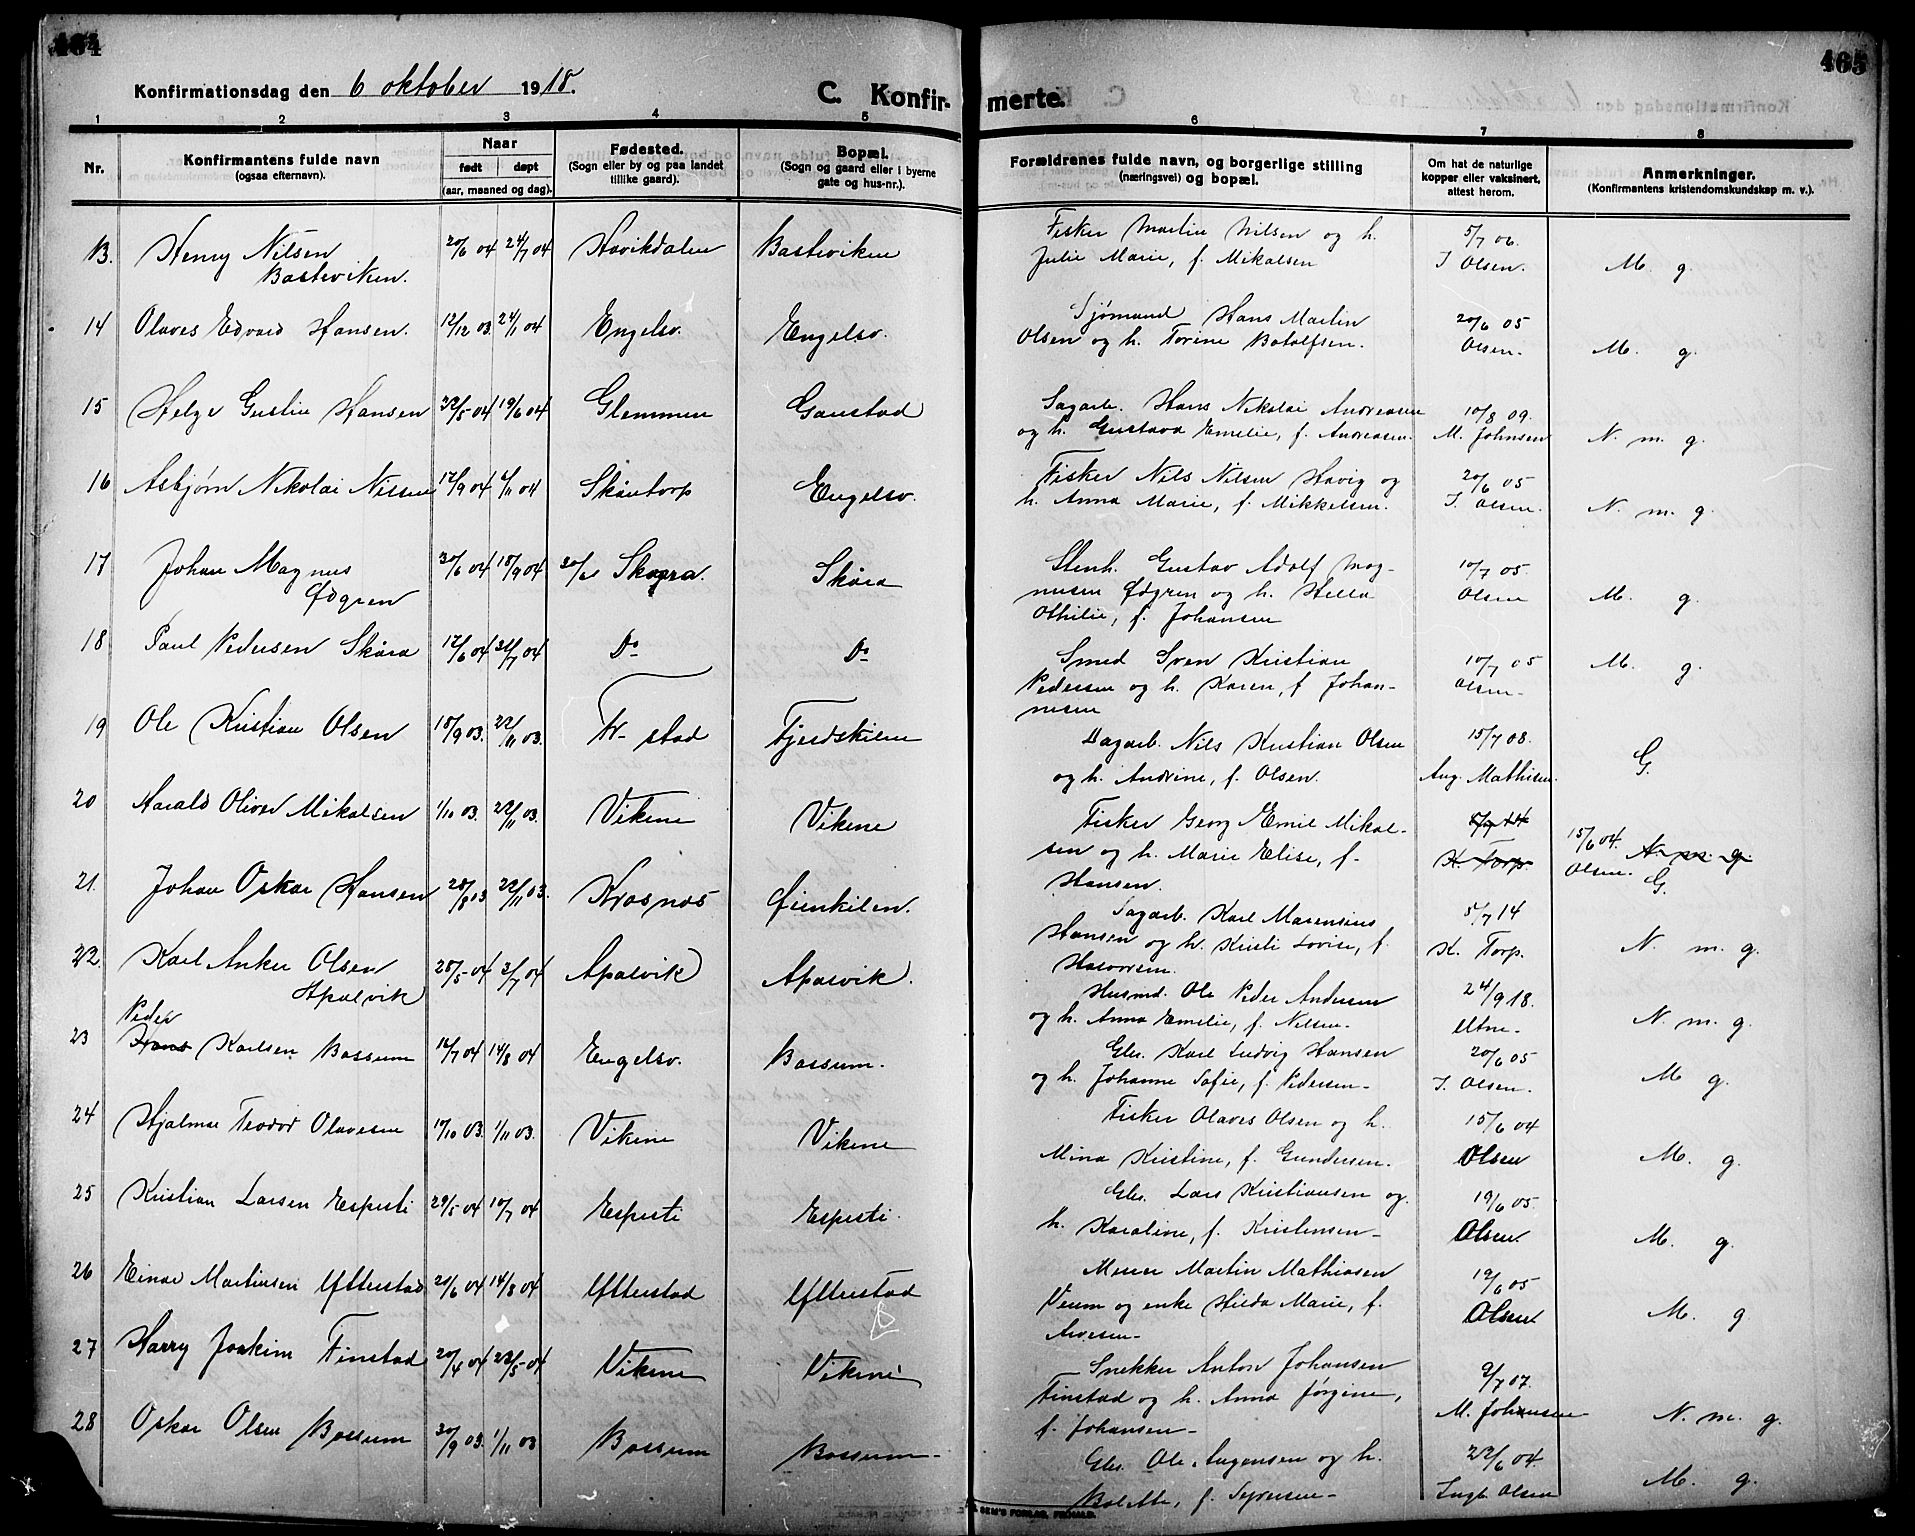 464
465
Konfirmationsdag den 6 oktober 1918.
C. Konfir-merte.
1 2 3 4 5 6 7 8
Nr.
Konfirmantens fulde navn
(ogsaa efternavn).
Naar
født døpt
(aar, maaned og dag).
Fødested.
(Sogn eller by og paa landet
tillike gaard).
Bopæl.
(Sogn og gaard eller i byerne
gate og hus-nr.).
Forældrenes fulde navn, og borgerlige stilling
(næringsvei) og bopæl.
Om hat de naturlige
kopper eller vaksinert,
attest herom.
Anmerkninger.
(Konfirmantens kristendomskundskap m. v.).
13. Henry Nilsen 20/6 04 24/7 04 Havikdalen Basteviken Fisker Martin Nilsen og h. 5/7 06.
Basteviken. Julie Marie, f. Mikalsen J Olsen. M. g.
14 Olaves Edvard Hansen. 12/12 03. 24/1 04 Engelsv. Engelsv. Sjømand Hans Martin 20/6 05
Olsen og h. Torine Botolfsen. Olsen. M. g.
15 Helge Gustav Hansen 22/5 04 19/6 04 Glemmen Gaustad Sagarb. Hans Nikolai Andreasen 10/8 09.
og h. Gustava Emilie, f. Andreasen. M. Johnsen N. m. g.
16 Asbjørn Nikolai Nilsen 17/9 04 /11 04 Skåntorp Engelsv. Fisker Nils Nilsen Havig og 20/6 05
h. Anna Marie, f. Mikkelsen. J. Olsen. N. m. g.
17 Johan Magnus 30/6 04 18/9 04 Skogra. Skåra Stenh. Gustav Adolf Mag- 10/7 05
Ødgren nusen Ødgren og h. Hella Olsen M. g.
Othilie, f. Johansen
18 Paul Pedersen Skåra 12/6 04 31/7 04 Do Do Smed Sven Kristian 10/7 05 M. g.
Pedersen og h. Karen, f. Johan- Olsen-
nesen
19 Ole Kristian Olsen 18/9 03. 22/11 03. Fr- stad Fjeldskilen Dagarb. Nils Kristian Olsen 15/7 08. G.
og h. Andrine, f. Olsen. Aug. Mathisen.
20 Harald Oliver Mikalsen 1/10 03. 22/11 03. Vikene Vikene Fisker Georg Emil Mikal- 5/7 14 15/6 04. N. m. g.
sen og h. Marie Elise, f. K. Torp. Olsen. G.
Hansen.
21. Johan Oskar Hansen 28/8 03 22/11 03. Krosnes Øienkilen. Sagarb. Karl Marensius 5/7 14
Hansen og h. Kristi Lovise, f. K. Torp. N. m. g.
Halvorsen.
22. Karl Anker Olsen 28/5 04 3/7 04 Apalvik Apalvik. Husmd. Ole Peder Andersen 24/9 18.
Apalvik og h. Anna Emilie, f. Nilsen. Utne- N. m. g.
Peder
23 Hans Karlsen Bossum 14/7 04 14/8 04 Engelsv. Bossum. Gbr. Karl Ludvig Hansen 20/6 05
og h. Johanne Sofie, f. Pedersen- J. Olsen. M g.
24 Hjalmar Teodor Olavesen 17/10 03. 1/11 03. Vikene Vikene Fisker Olaves Olsen og h. 15/6 04
Mina Kristine, f. Gundersen. Olsen M. g.
25 Kristian Larsen Espesti 29/5 04 10/7 04 Espesti Espesti. Gbr. Lars Kristiansen og 19/6 05.
h. Karoline, f. Kristensen- Olsen M. g.
26 Einar Martinsen Ufterstad 20/6 04 14/8 04 Ufterstad Ufterstad Murer Martin Mathiasen 19/6 05
Veum og enke Hilda Marie, f. Olsen M. g
Arvesen-
27 Harry Joakim Finstad 20/4 04 22/5 04 Vikene Vikene Snekker Anton Johansen 9/7 07.
Finstad og h. Anna Jørgine, M. Johansen N. m. g.
f. Johansen-
28 Oskar Olsen Bossum 30/9 03. 1/11 03 Bossum Bossum- Gbr. Ole Augensen og h. 22/6 04.
Bolette, f. Syversen- Ingb Olsen M. g.
SEM'S FORLAG, FR.HALD.